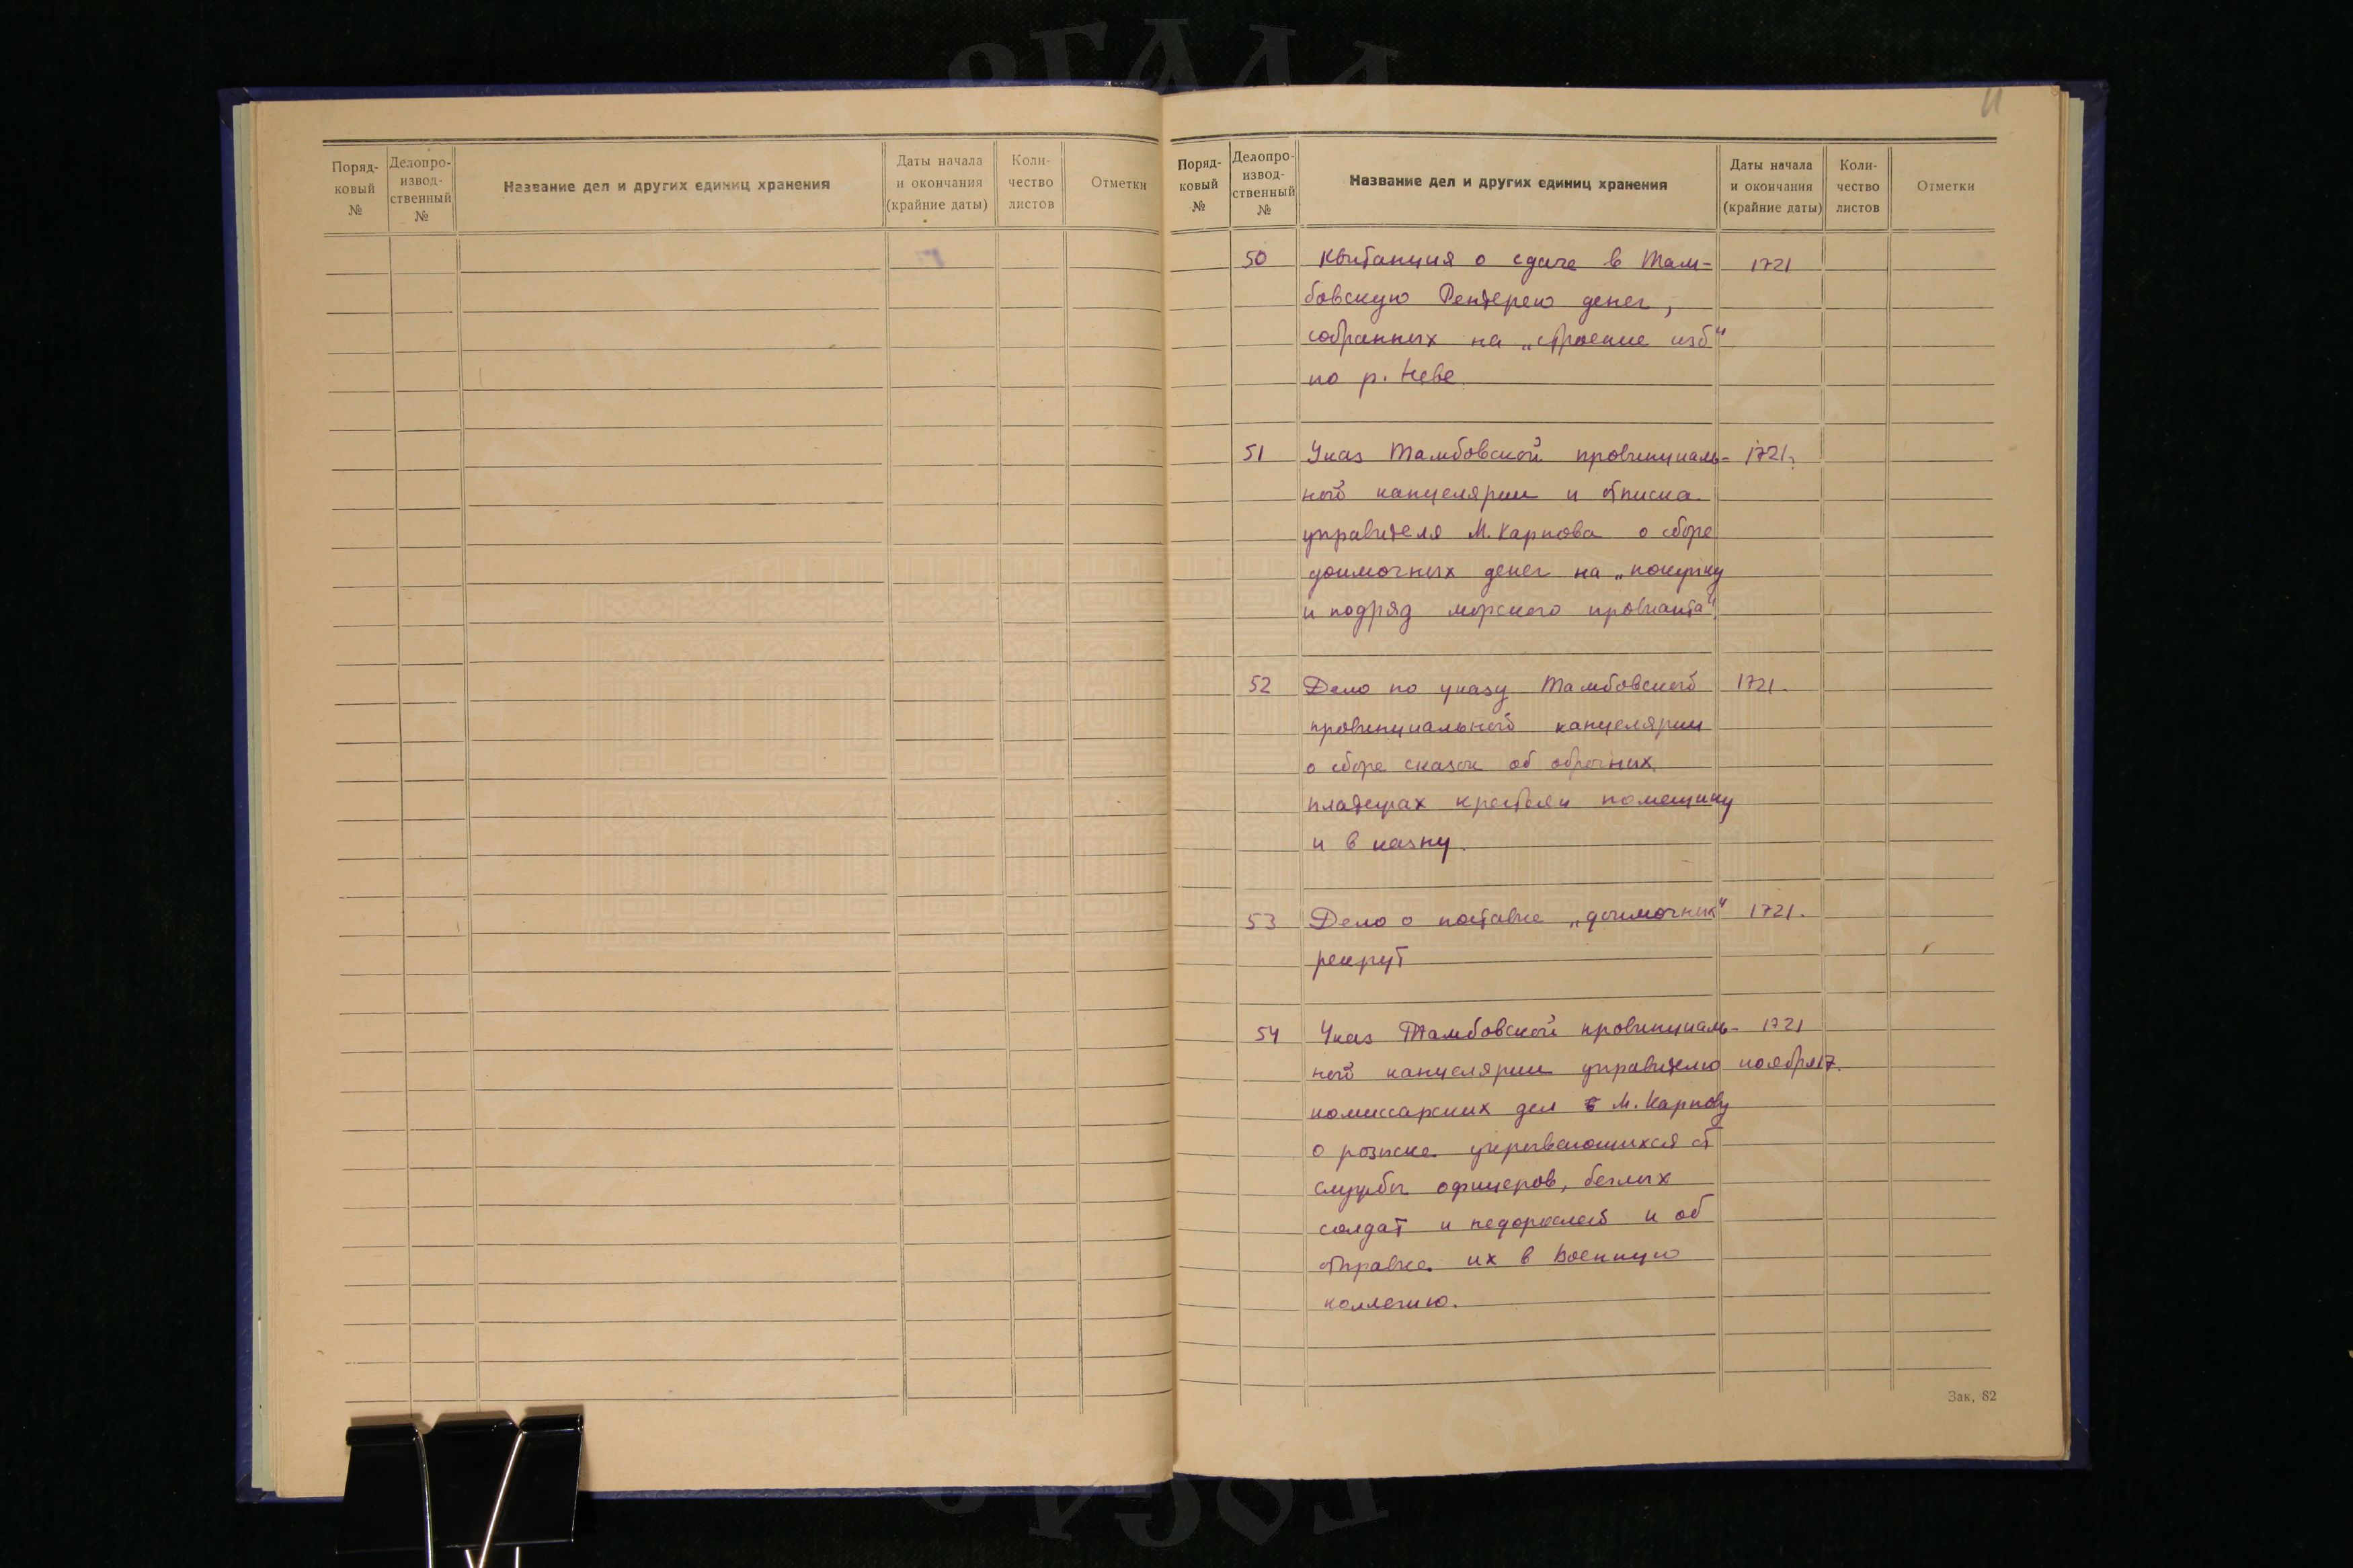 Поряд-
ковый
№
Делопро-
извод-
ственный
№
Название дел и других единиц хранения
Даты начала
и окончания
(крайние даты)
Коли-
чество
листов
Отметки
Поряд-
ковый
№
Делопро-
извод-
ственный
№
Название дел и других единиц хранения
Даты начала
и окончания
(крайние даты)
Коли-
чество
листов
Отметки
50 Квитанция о сдаче в Там- 1721
бовскую Рентерею денег,
собранных на „строение изб"
по р. Неве.
51 Указ Тамбовской провинциаль- 1721.
ной канцелярии и отписка
управителя М. Карпова о сборе
доимочных денег на „покупку
и подряд морского провианта".
52 Дело по указу Тамбовской 1721.
провинциальной канцелярии
о сборе сказок об оброчных
платежах крестьян помещику
и в казну.
53 Дело о поставке „доимочных" 1721.
рекрут
54 Указ Тамбовской провинциаль- 1721
ной канцелярии управителю ноября 17.
комиссарских дел М. Карпову
о розыске укрывающихся от
службы офицеров, беглых
солдат и недорослей и об
отправке их в Военную
коллегию.
Зак. 82